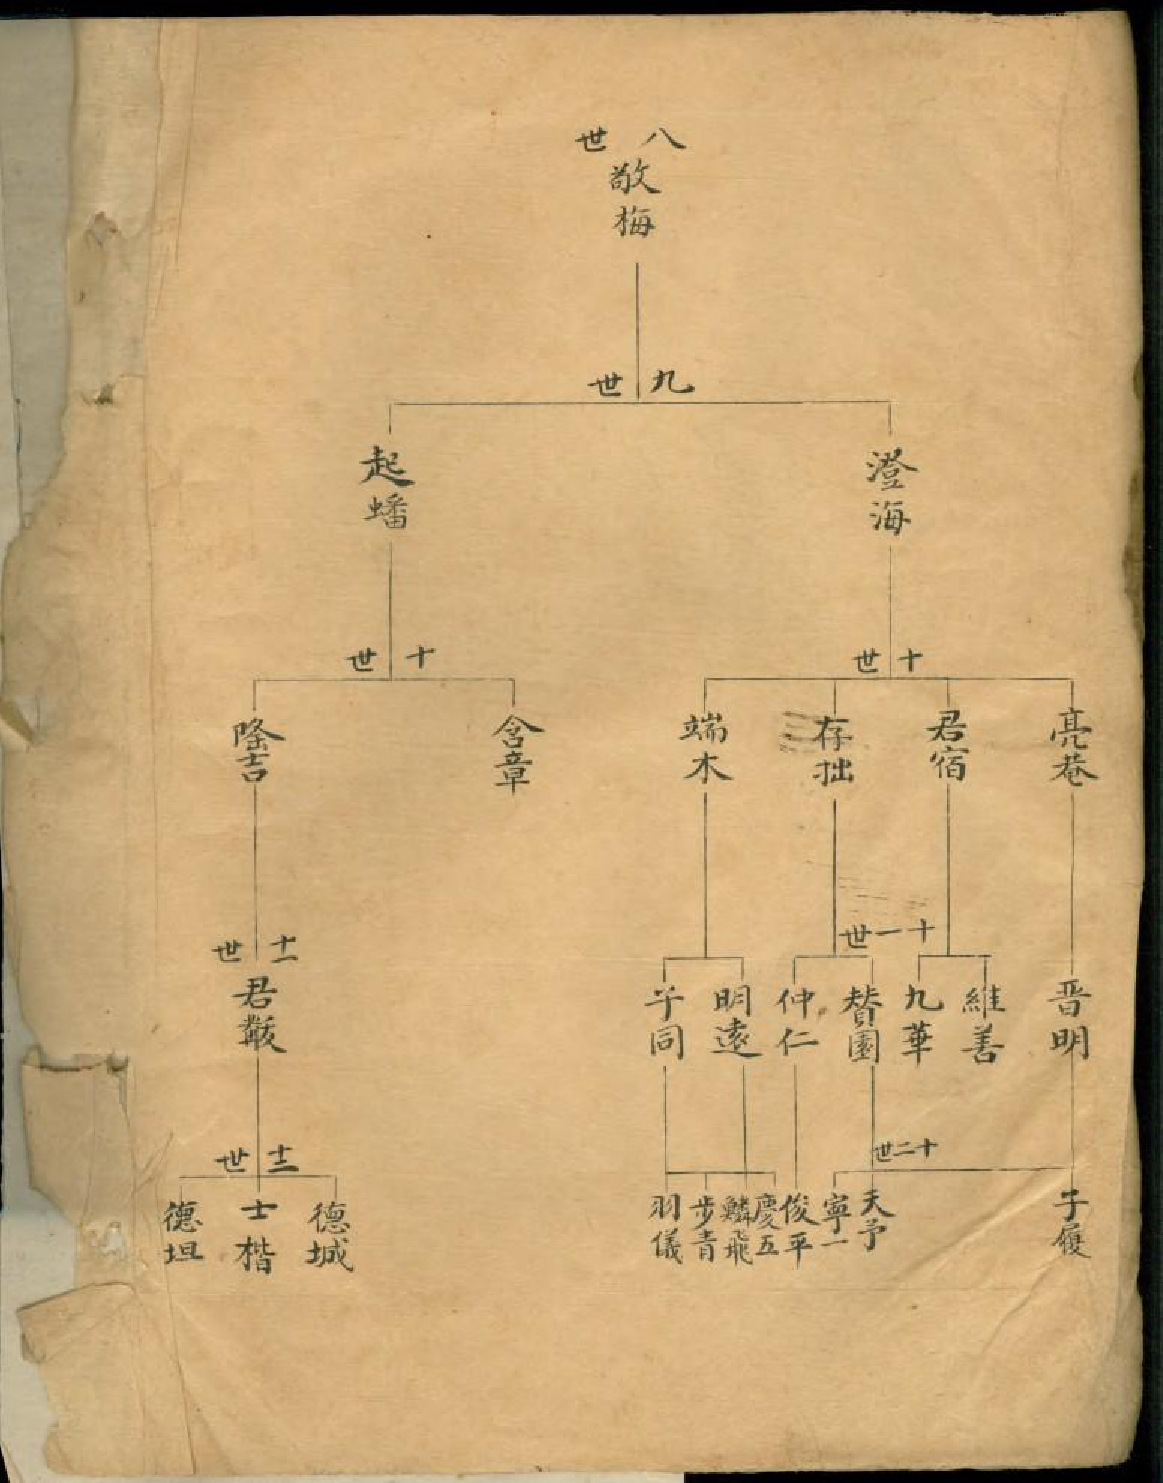 八世
敬梅
九世
澄海
起蟠
十世
亮巷
君宿
存拙
端木
十世
含章
隆吉
十一世
晋明
維善
九華
贊園
仲仁
明遠
同
十一世
君
十二世
子履
天予
寧一
俊平
慶五
鱗飛
步青
羽儀
十二世
德城
士楷
德坦